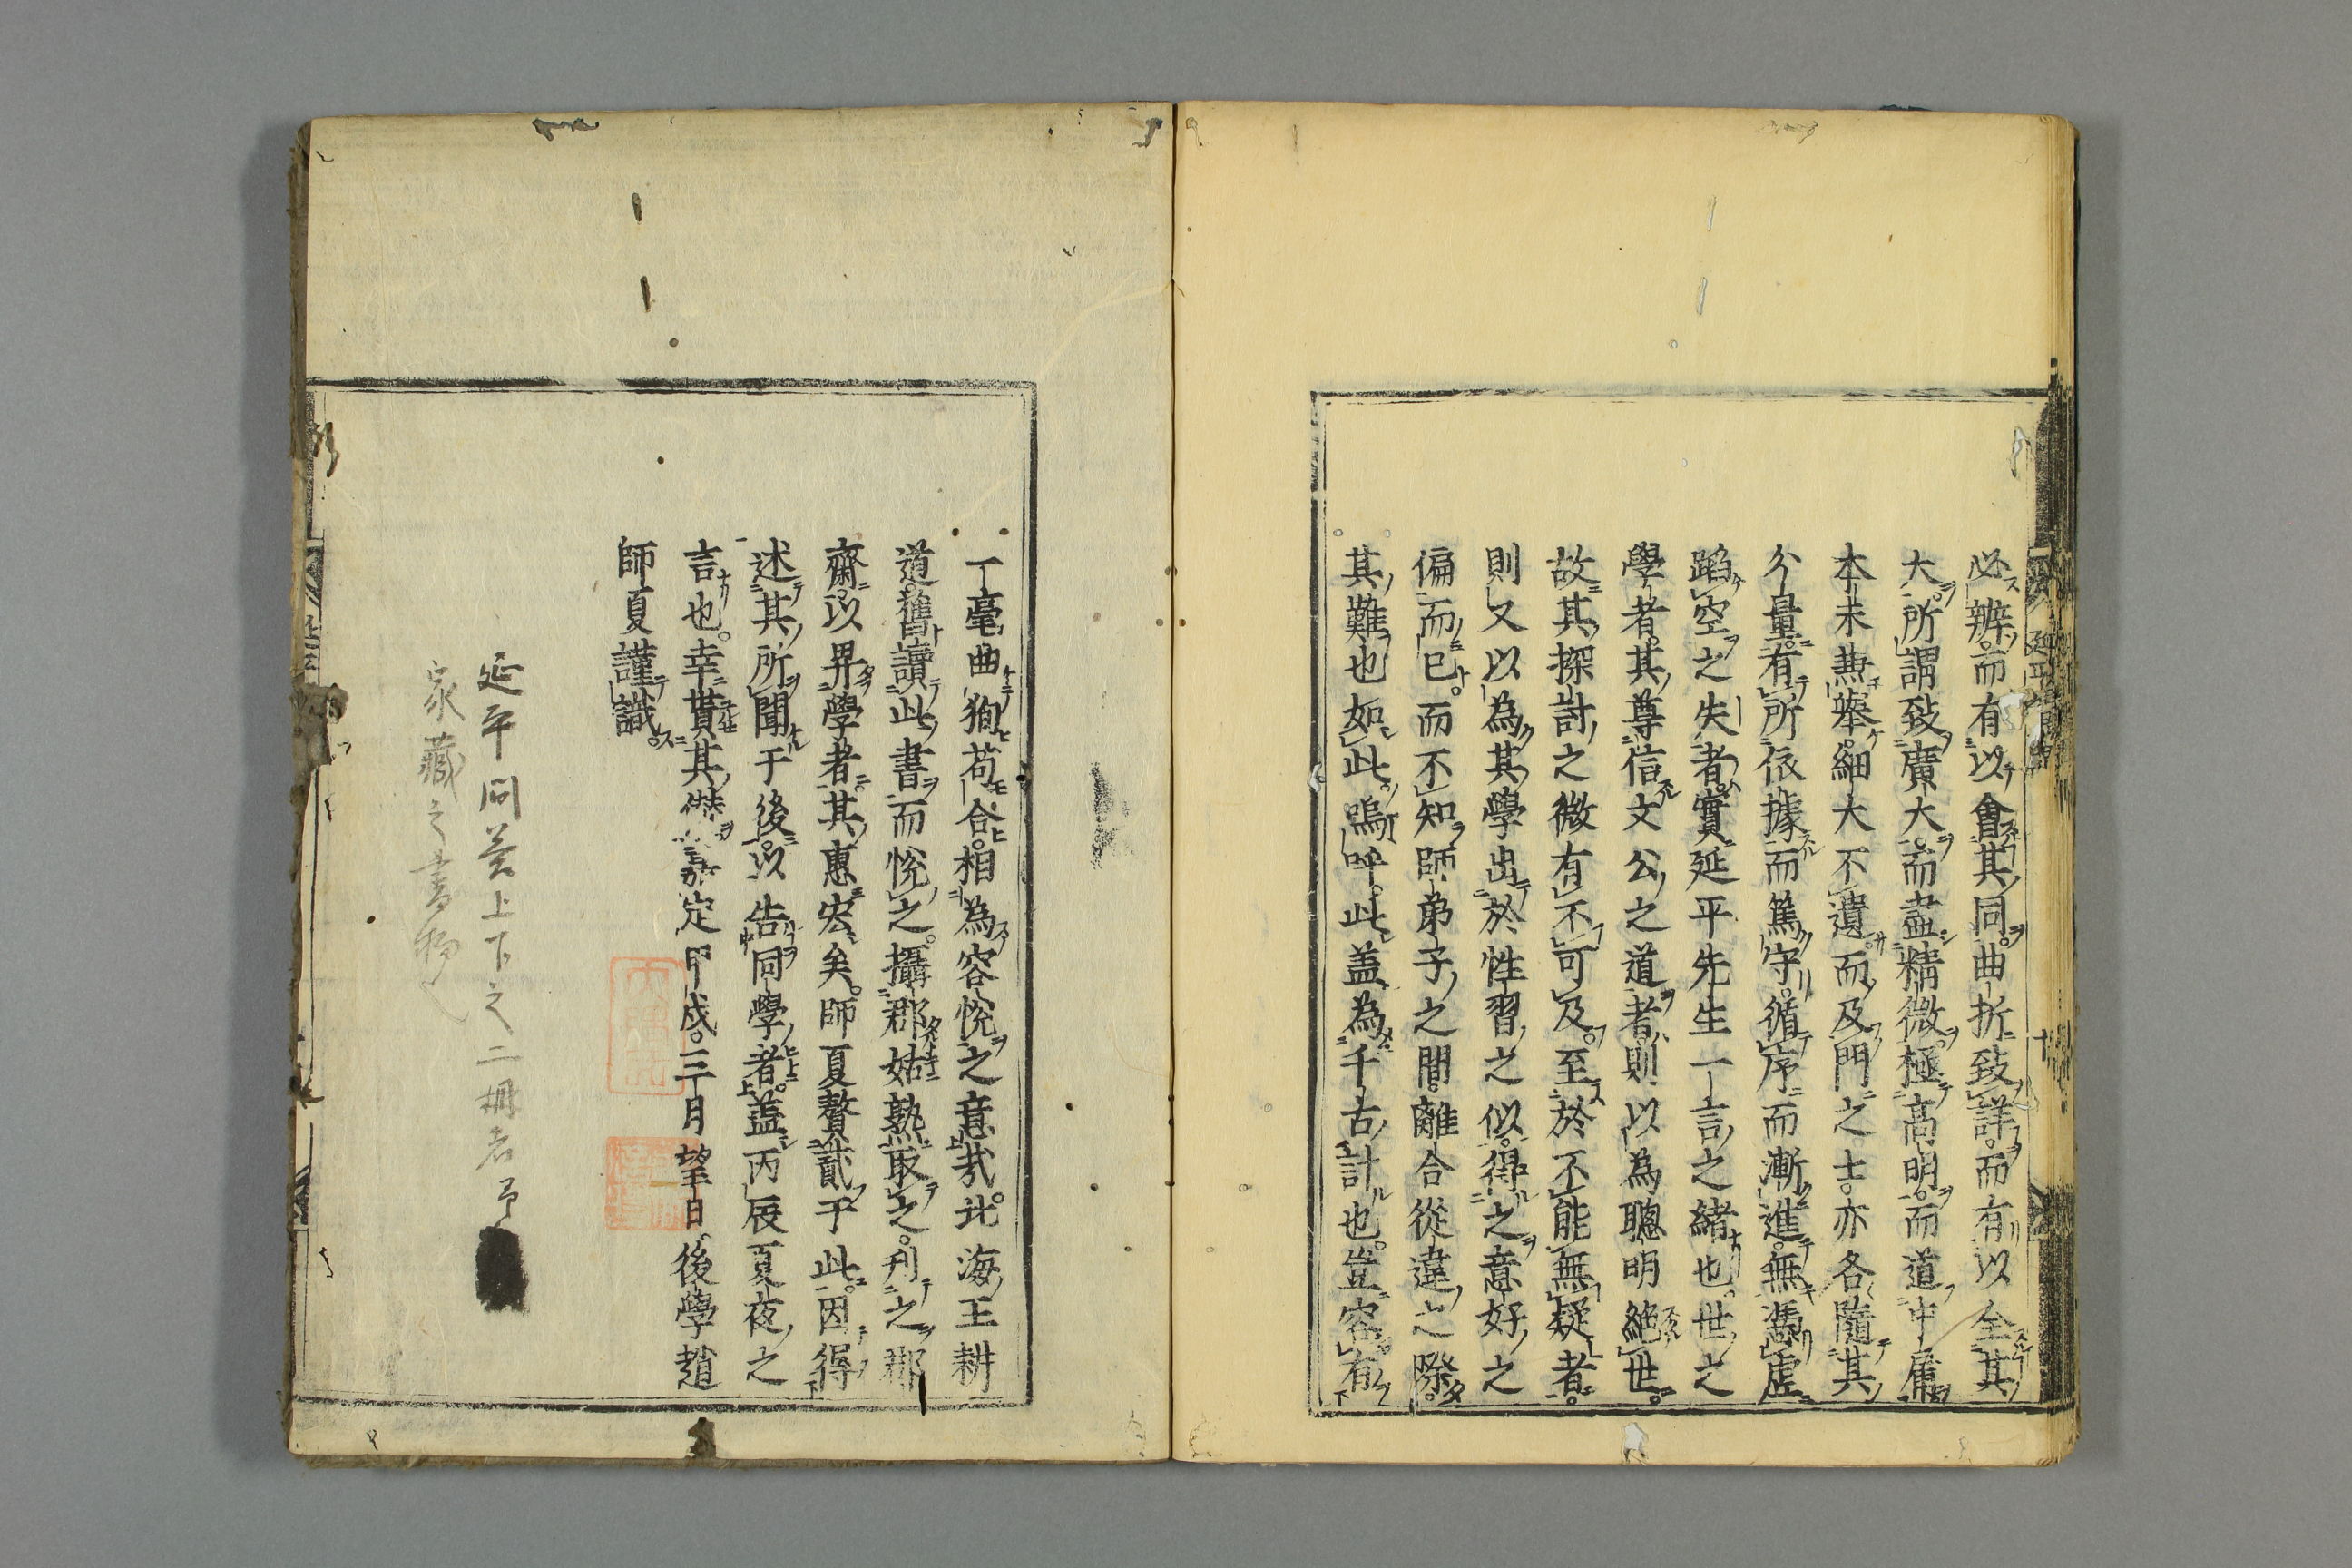 必辨而有以會其同曲折致詳而有以全其
大所謂致廣大而盡精微極高明而道中庸
本末兼舉細大不遺而及門之士亦各隨其
分量有所依據而篤守循序而漸進無憑虛
蹈空之失者實延平先生一言之緒也世之
學者其尊信文公之道者則以為聰明絶世
故其探討之微有不可及至於不能無疑者
則又以為其學出於性習之似得之意好之
偏而已而不知師弟子之間離合從違之際
其難也如此嗚呼此蓋為千古計也豈容有
一毫曲狥苟合相為容悦之意哉北海王耕
道舊讀此書而悦之攝郡姑孰取之刋之郡
齋以畀學者其惠宏矣師夏贅貳于此因得
述其所聞于後以告同學者蓋丙辰夏夜之
言也幸貰其僣 嘉定甲戌三月望日後學趙
師夏謹識
延平問荅上下之二冊者予
家藏之書物也